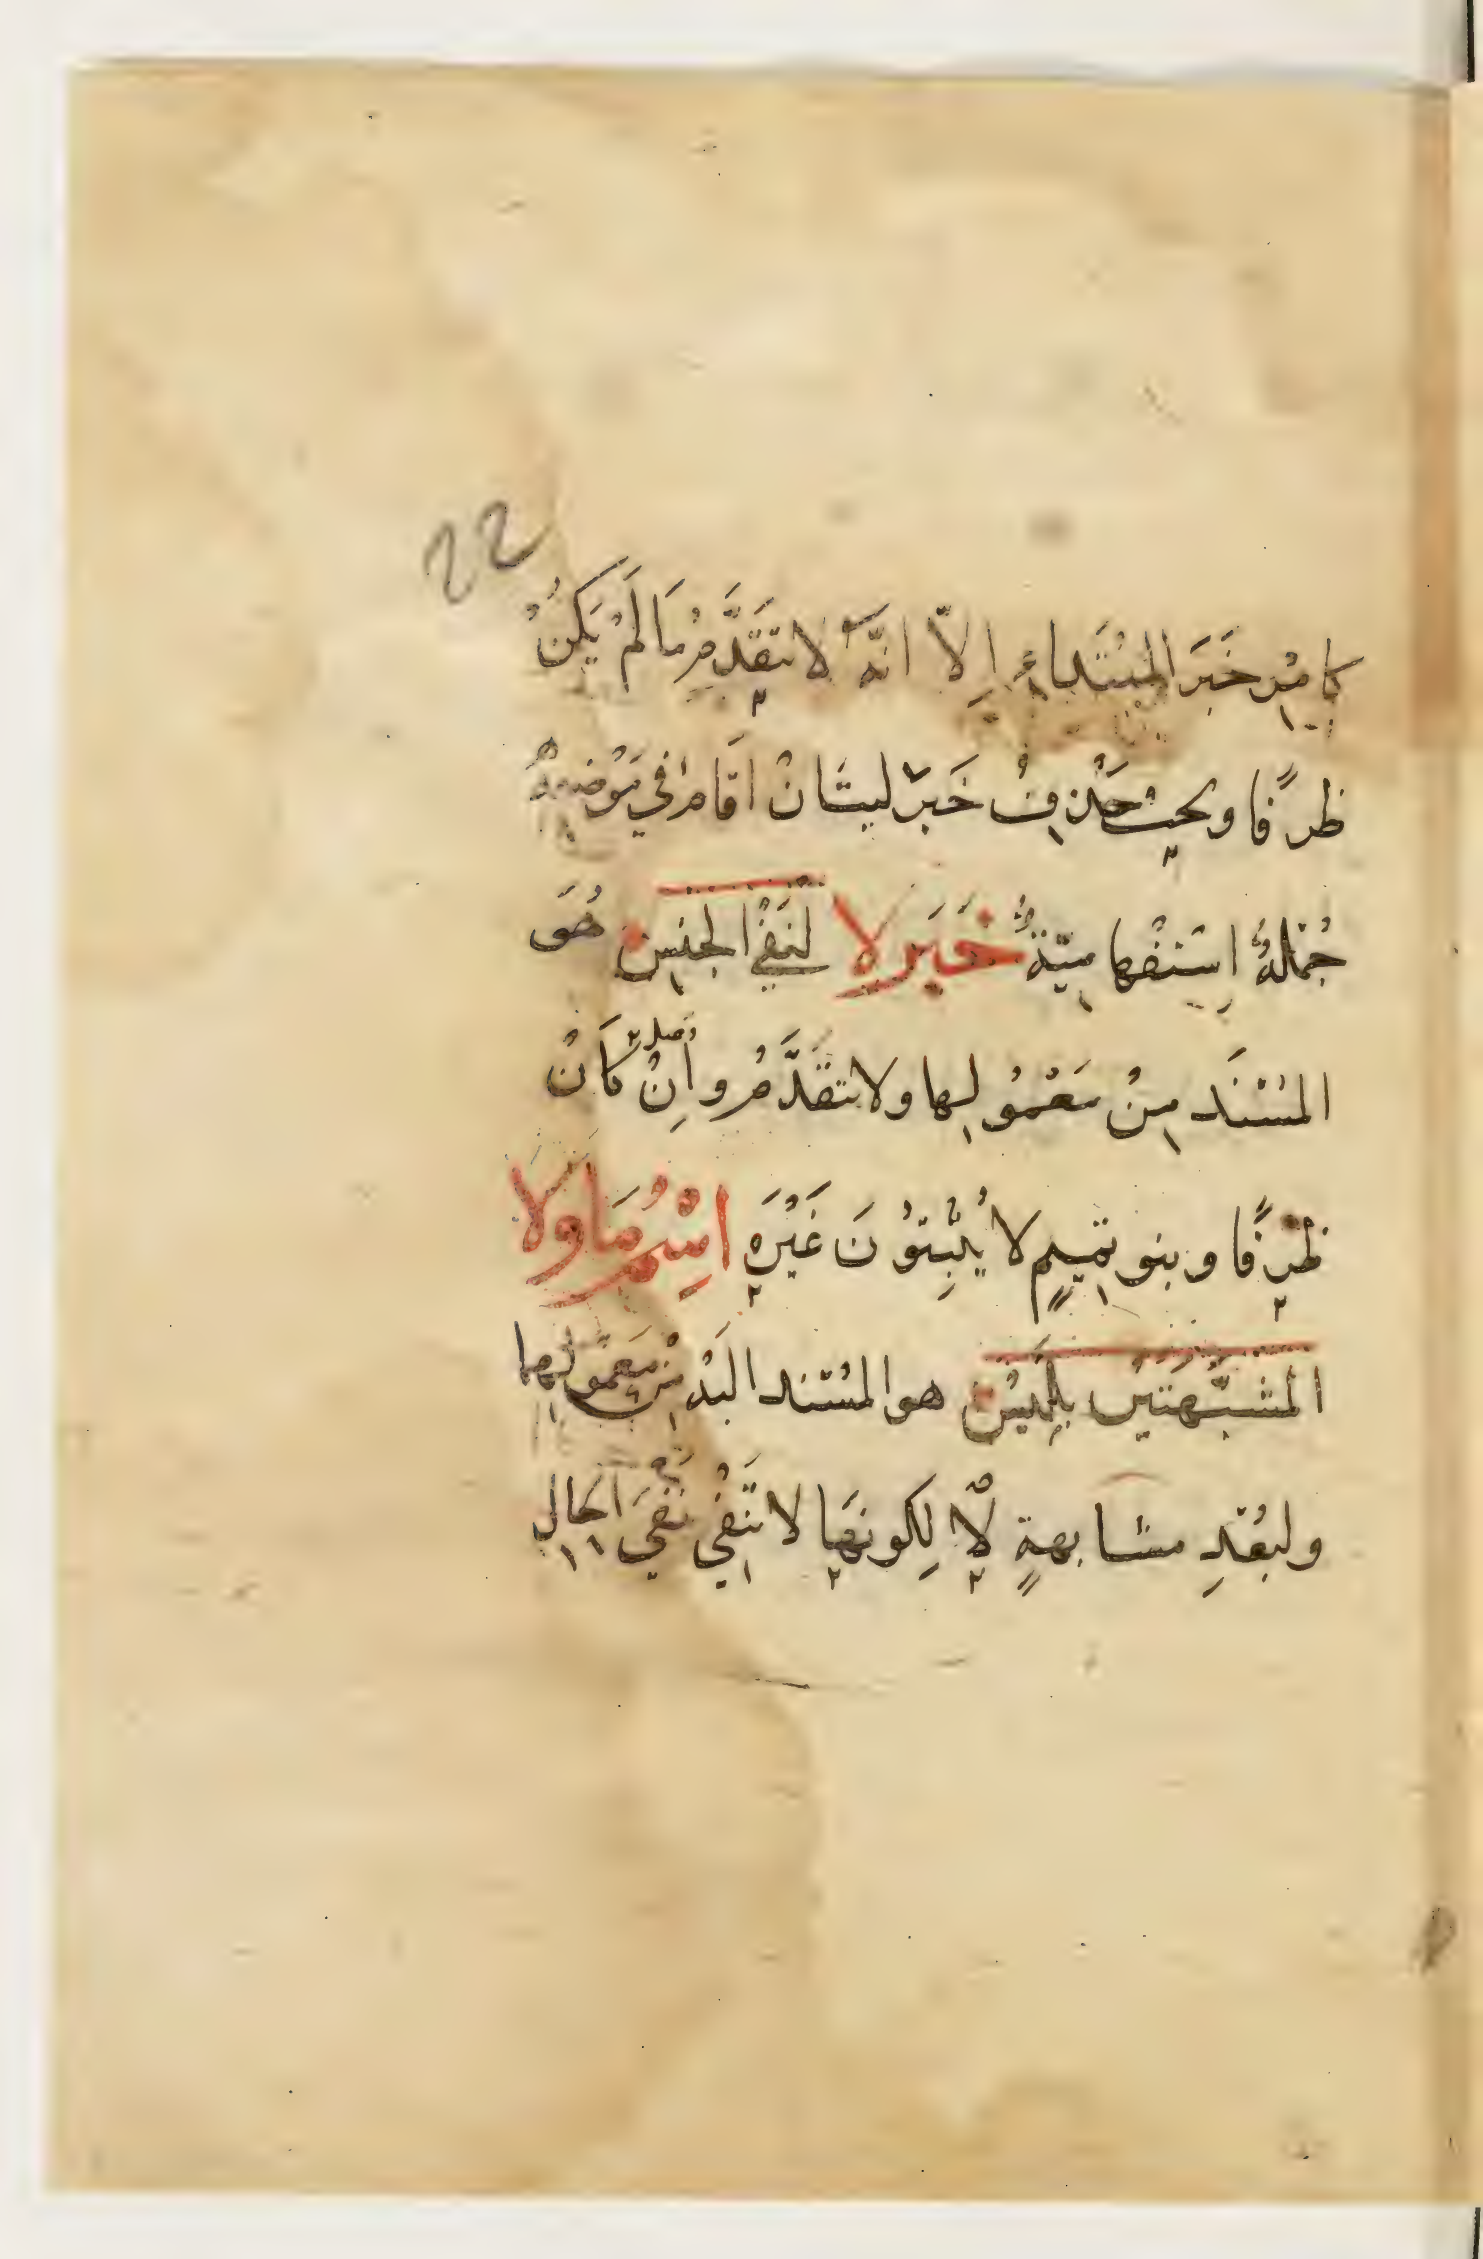 22
كامْرِ خَبَرَ المبْتَداءِ اِلاّ انّهُ لا تتقَدَّمُ مَا لَمْ يَكُنْ
ظرفًا ويجبُ حَذْفُ خَبَرِ ليتَ ان اَقَام في مَوْضعهُ
جُمْلَةً اِسْتفْهاميّةً خَبَر لا لنَفْي الجنسِ هُوَ
المسْنَد مِنْ مَعْمُوليها ولا تتقَدَّمُ واِنْ كَانَ
اصله
ظرْفًا وبنو تميمٍ لا يُثْبِتُونَ غَيْرَهِ اسْمُ مَا وَلا
المشبّهتَيْنِ بِلَيْسَ هو المسْند اليْهِ مِنْ مَعْموليهما
ولبُعْدِ مشابهةِ لا لِكونهَا لا تَنْفِي نَفْيَ الحال